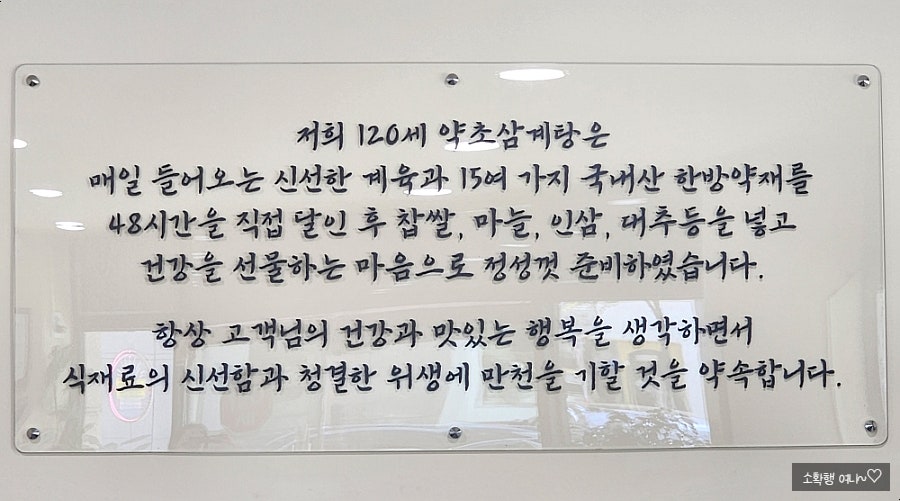 저희 120세 약초삼계탕은
매일 들어오는 신선한 계육과 15여 가지 국내산 한방약재를
48시간을 직접 달인 후 찹쌀, 마늘, 인삼, 대추등을 넣고
건강을 선물하는 마음으로 정성껏 준비하였습니다.
항상 고객님의 건강과 맛있는 행복을 생각하면서
식재료의 신선함과 청결한 위생에 만천을 기할 것을 약속합니다.
소확행 여나~♡